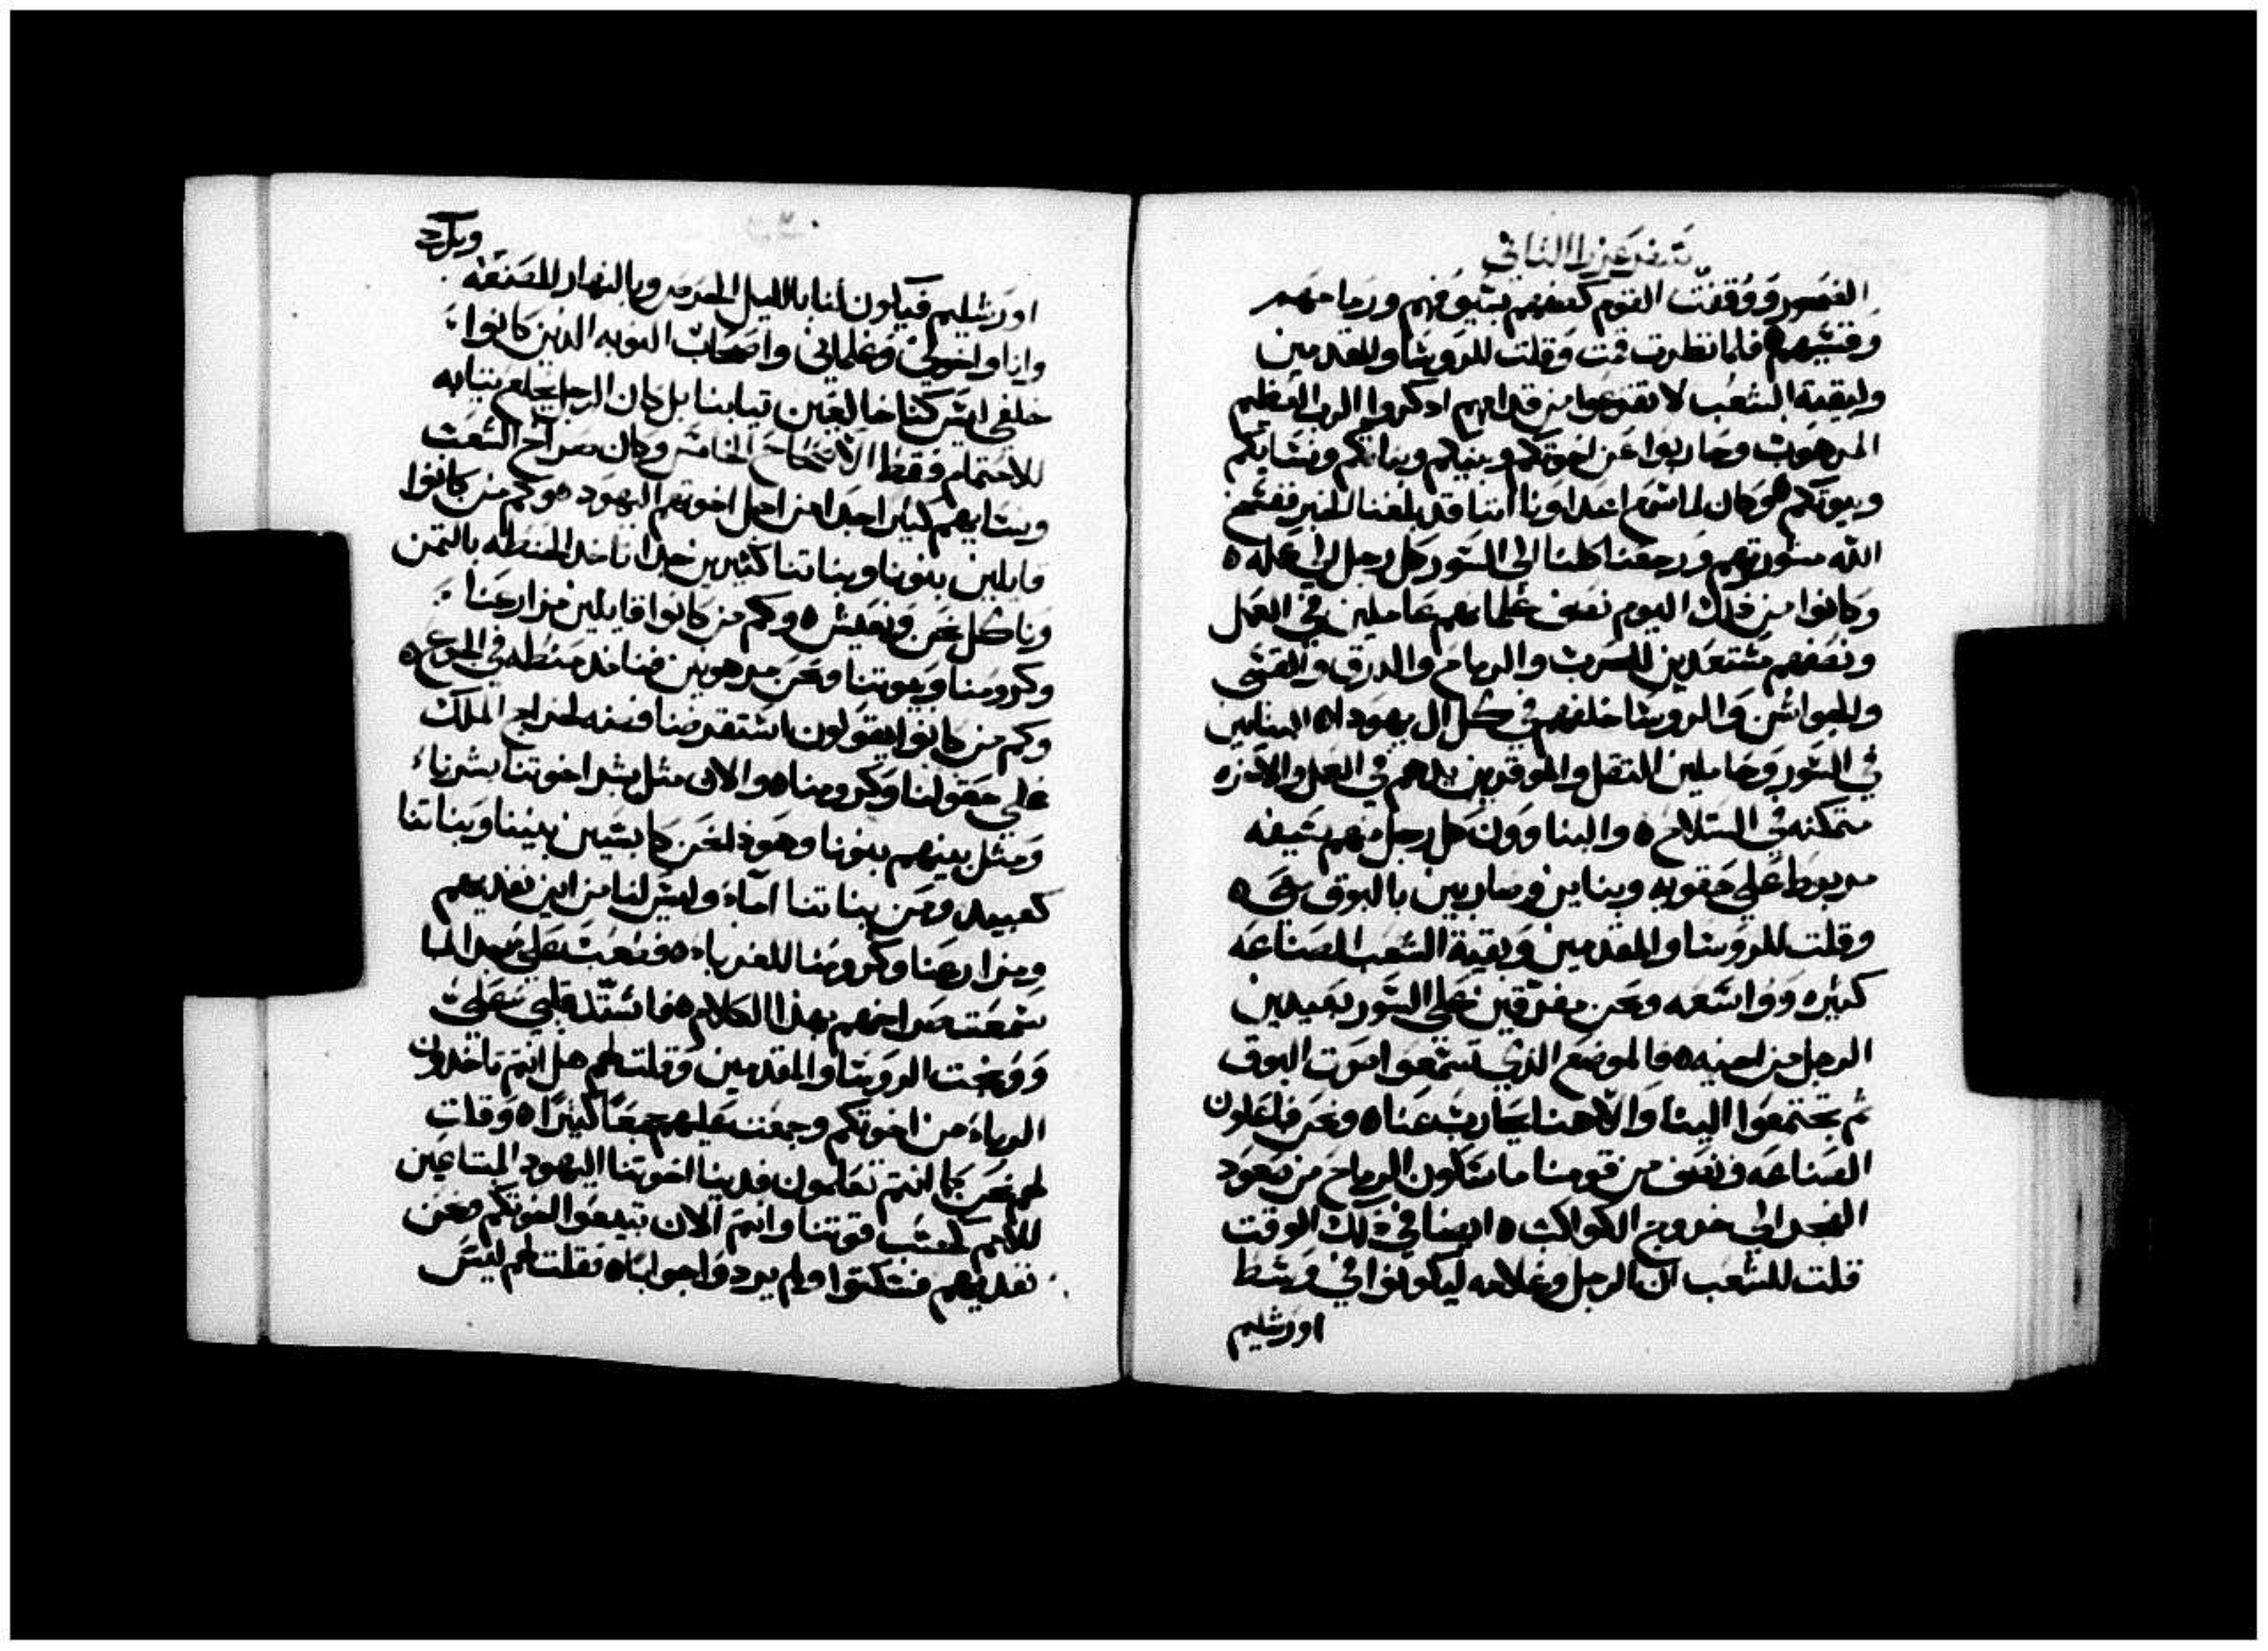 سفر عزرا الثاني
القصور ووقفت القوم كصفهم بسيوفهم ورماحهم
وقسيهم ه فلما نظرت قمت وقلت للروسا والمقدمين
ولبقية الشعب لا تفزعوا من قدامهم ادكروا الرب العظيم
المرهوب وحاربوا عن اخوتكم وبنيكم وبناتكم ونسايكم
وبيوتكم ه وكان لما سمع اعداونا اننا قد بلغنا الخبر ففسخ
الله مشورتهم ورجعنا كلنا الى السور كل رجل الى عمله ه
وكانوا من ذلك اليوم نصف غلمانهم عاملين في العمل
ونصفهم مستعدين للحرب والرماح والدرق والقسي
والجواشن والروسا خلفهم في كل ال يهودا ه البنايين
في السور وحاملين الثقل والموقرين يدهم في العمل والاخره
متمكنه في السلاح ه والبناوون كل رجل منهم سيفه
مربوط على حقويه وبنايين وضاربين بالبوق
وقلت للروسا والمقدمين وبقية الشعب الصناعه
كبيره وواسعه ونحن مفرقين على السور بعيدين
الرجل من اخيه ه فالموضع الذي تسمعوا صوت البوق
ثم تجتمعوا الينا والاهنا يحارب عنا ه ونحن فاعلون
الصناعه ونصف من قومنا ماسكون الرماح من صعود
الفجر الى خروج الكواكب ه ايضا في ذلك الوقت
قلت للشعب ان الرجل وغلامه ليكونوا في وسط
اورشليم
اورشليم فيكون لنا بالليل الحرس وبالنهار للصنعه
وانا واخوتي وغلماني واصحاب النوبه الدين كانوا
خلفي ليس كنا خالعين تيابنا بل كان الرجل يخلع تيابه
للاستحمام فقط الاصحاح الخامس وكان صراخ الشعب
ونسايهم كبير جدا من اجل اخوتهم اليهود ه وكم من كانوا
قايلين بنونا وبناتنا كثيرين جدا ناخد الحنطه بالتمن
وناكل نحن ونعيش ه وكم من كانوا قايلين مزارعنا
وكرومنا وبيوتنا ونحن مرهونين فناخد حنطه في الجوع ه
وكم من كانوا يقولون استقرضنا فضه لخراج الملك
على حقولنا وكرومنا ه والان مثل بشر اخوتنا بشرنا
ومثل بنيهم بنونا وهوذا نحن كابسين بنينا وبناتنا
كعبيد ومن بناتنا اماء وليس لنا من اين نفديهم
ومزارعنا وكرومنا للغرباء ه فغضبت علي جدا لما
سمعت صراخهم بهذا الكلام ه فاستد قلبي علي
ووبخت الروسا والمقدمين وقلت لهم هل انتم تاخدون
الرباء من اخوتكم وجمعت عليهم جمعًا كبيرًا ه وقلت
لهم نحن كما انتم تعلمون فدينا اخوتنا اليهود المباعين
للامم كحسب قوتنا وانتم الان تبيعوا اخوتكم ونحن
نفديهم فسكتوا ولم يردوا جوابًا ه فقلت لهم ليس